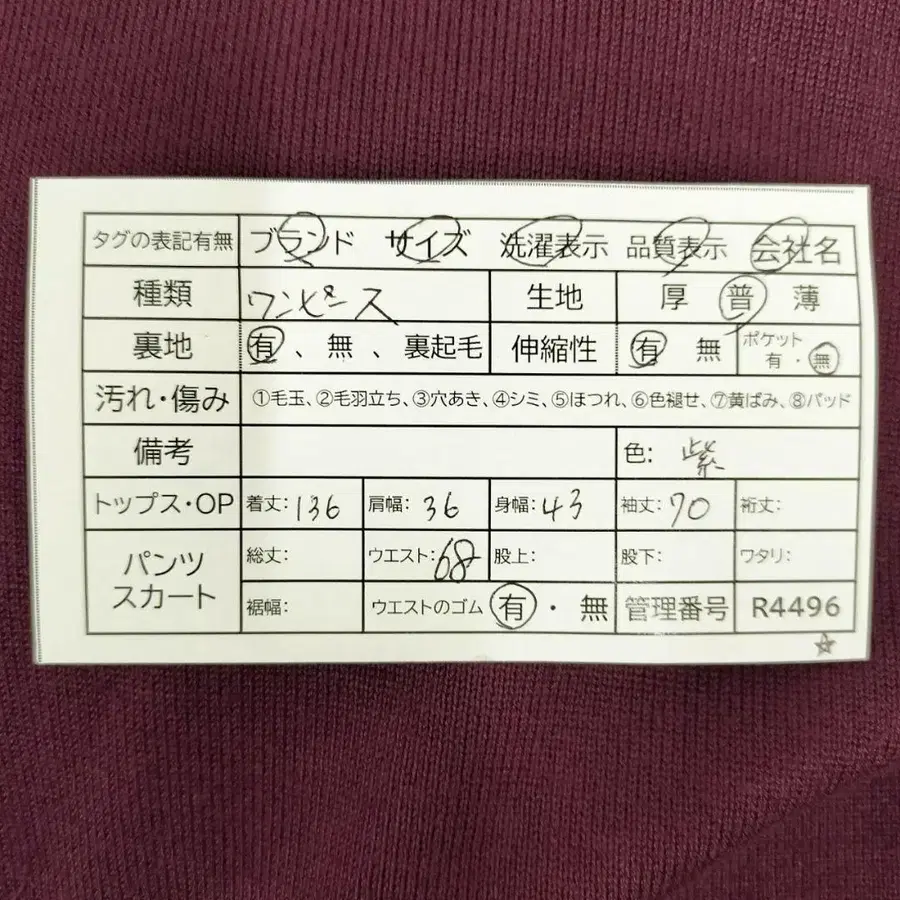 タグの表記有無 ブランド サイズ 洗濯表示 品質表示 会社名
種類 ワンピース 生地 厚 普 薄
裏地 有、無、裏起毛 伸縮性 有 無 ポケット 有・無
汚れ・傷み ①毛玉、②毛羽立ち、③穴あき、④シミ、⑤ほつれ、⑥色褪せ、⑦黄ばみ、⑧パッド
備考 色: 紫
トップス・OP 着丈:136 肩幅:36 身幅:43 袖丈:70 裄丈:
パンツ スカート 総丈: ウエスト:68 股上: 股下: ワタリ:
裾幅: ウエストのゴム 有・無 管理番号 R4496